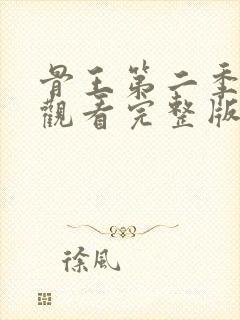 骨王第二季
觀看完整版
徐风